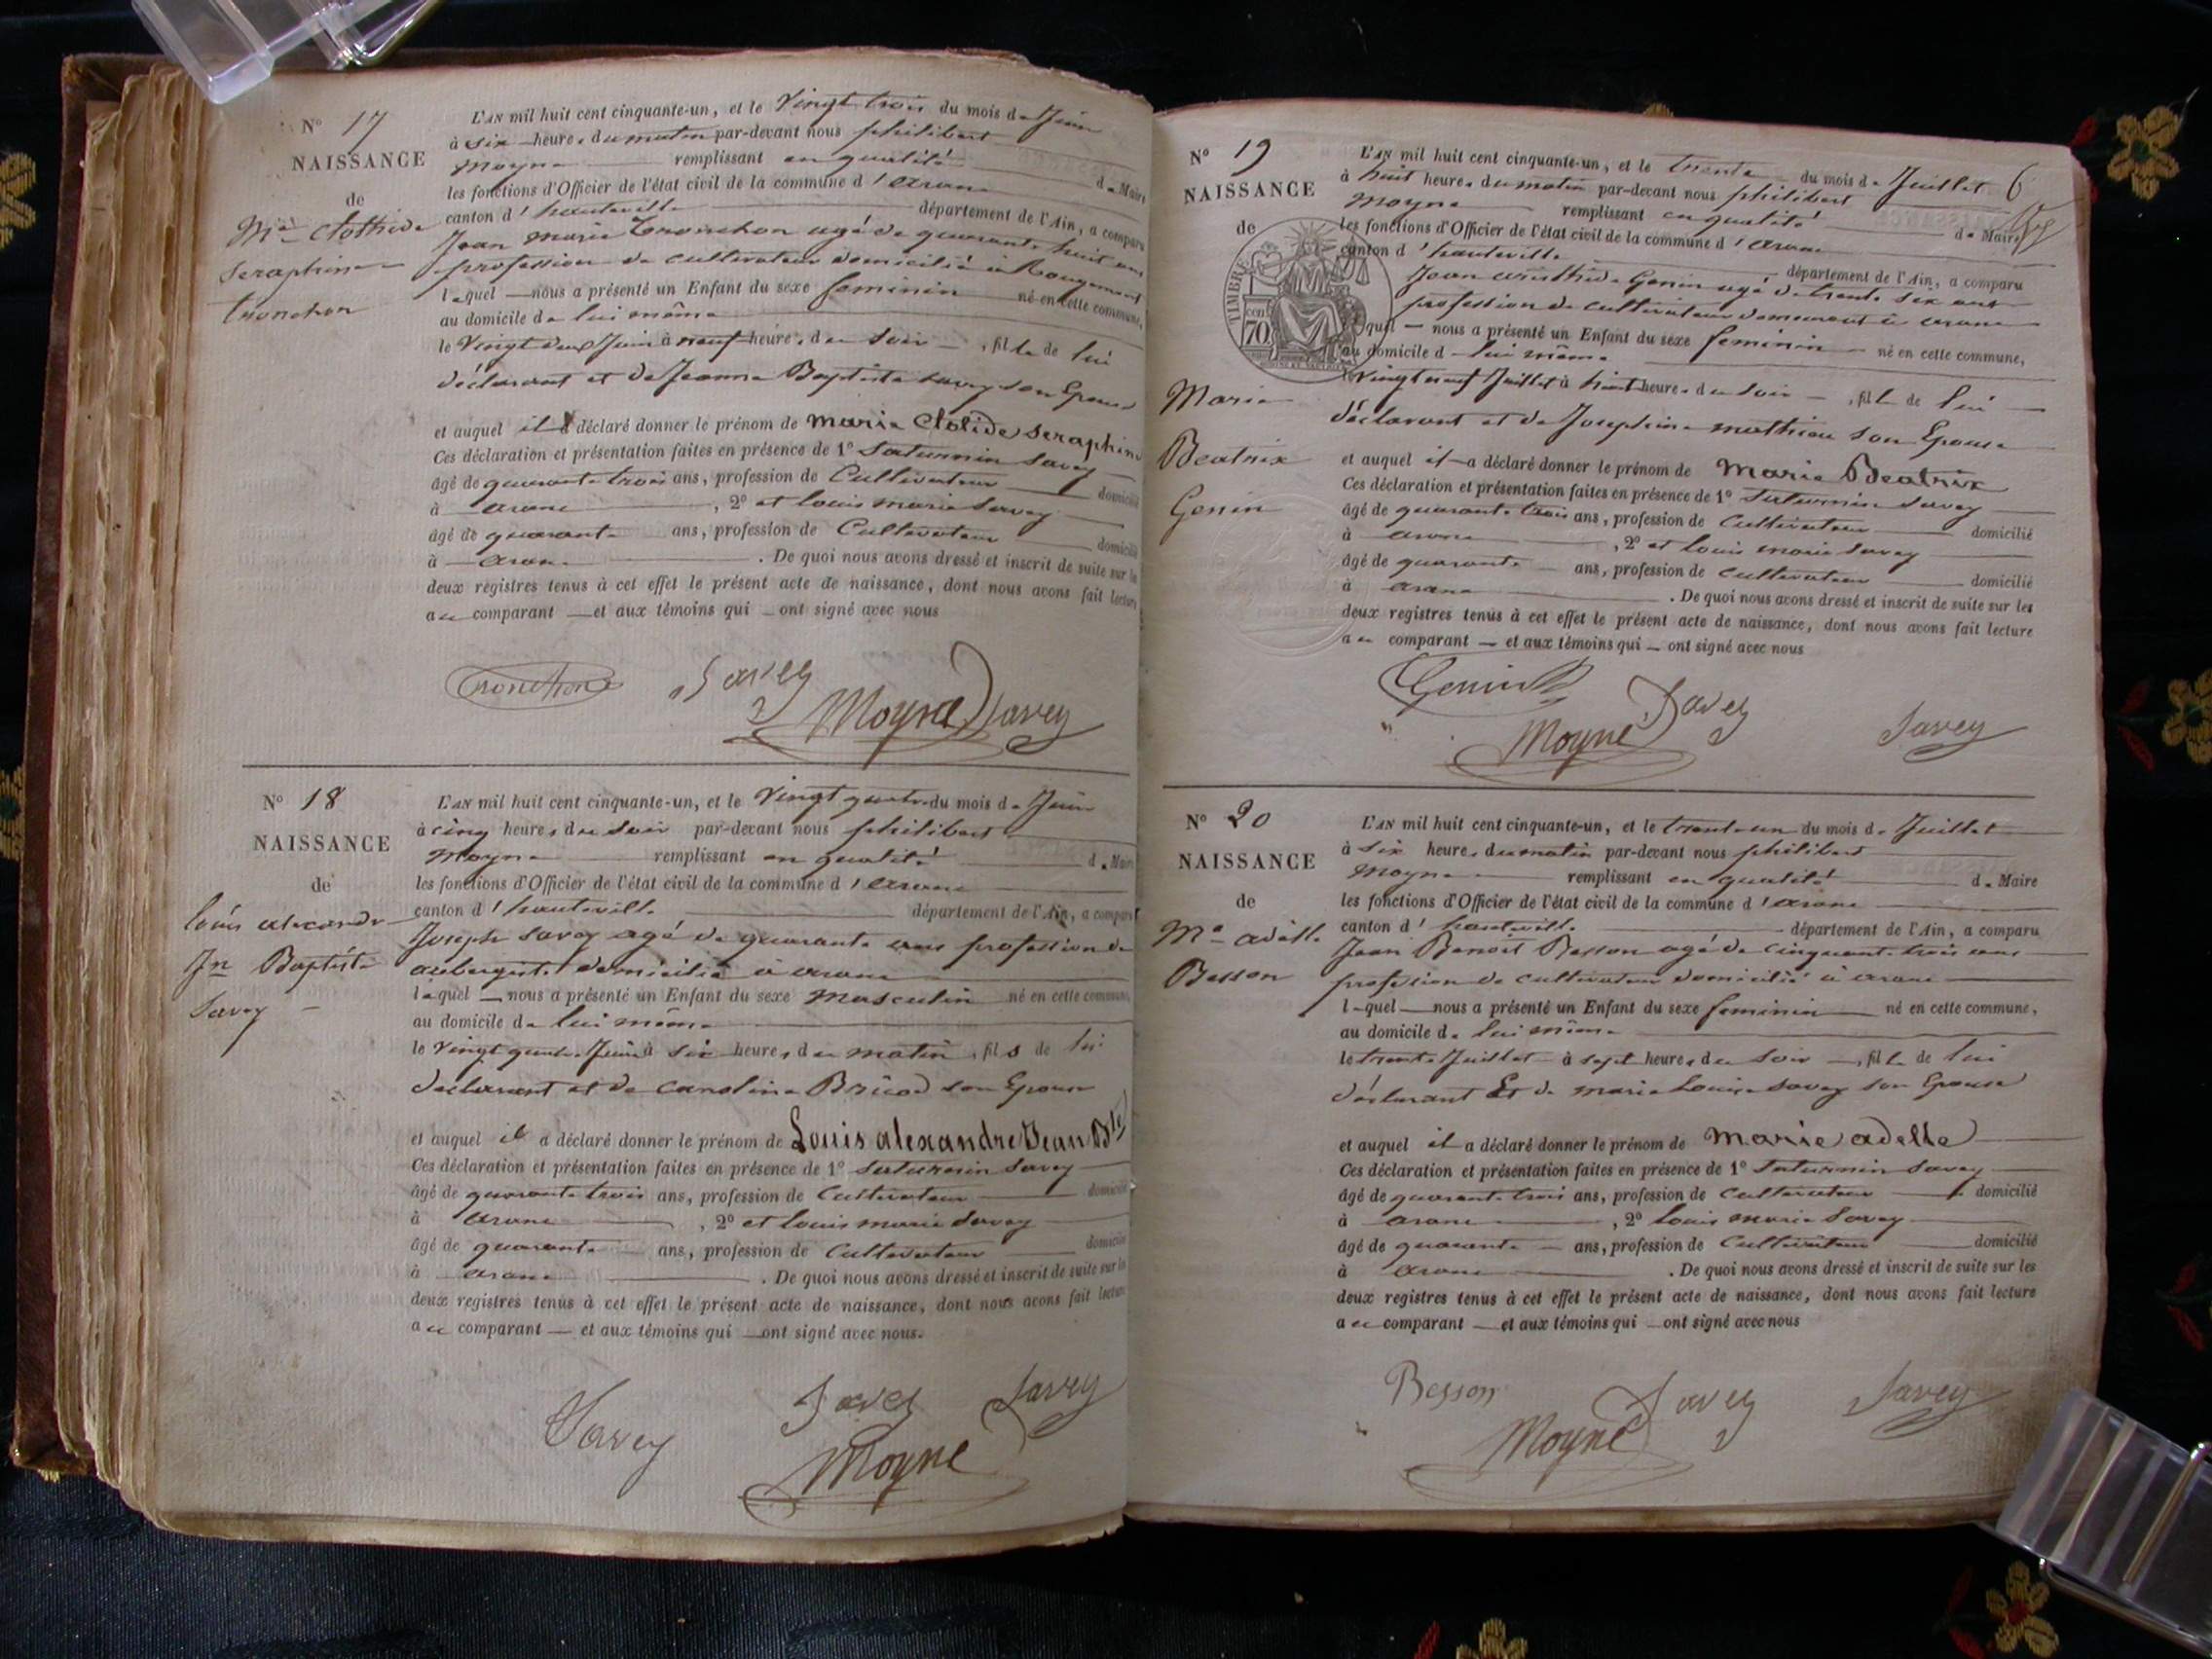 N° 17
NAISSANCE
de
Mie Clothide
Seraphine
tronchon
L'AN mil huit cent cinquante-un, et le Vingt trois du mois de Juin
à Six heures du matin par-devant nous philibert
Moyne remplissant en qualité de Maire
les fonctions d'Officier de l'état civil de la commune d'arane
canton d'hauteville département de l'Ain, a comparu
Jean marie Tronchon agé de quarante huit ans
profession de cultivateur domicilié à Rougemont
lequel nous a présenté un Enfant du sexe feminin né en cette commune,
au domicile de lui même
le Vingt deux Juin à neuf heures du Soir, fille de lui
déclarant et de Jeanne Baptiste Savey son Epouse
et auquel il a déclaré donner le prénom de marie Clotide Seraphine
Ces déclaration et présentation faites en présence de 1° Saturnin Savey
âgé de quarante trois ans, profession de Cultivateur domicilié
à arane, 2° et louis marie Savey
âgé de quarante ans, profession de Cultivateur domicilié
à arane. De quoi nous avons dressé et inscrit de suite sur les
deux registres tenus à cet effet le présent acte de naissance, dont nous avons fait lecture
au comparant et aux témoins qui ont signé avec nous
Tronchon Savey
Moyne Savey
N° 18
NAISSANCE
de
louis alexandre
Jn Baptiste
Savey
L'AN mil huit cent cinquante-un, et le Vingt quatre du mois de Juin
à cinq heures du Soir par-devant nous philibert
Moyne remplissant en qualité de Maire
les fonctions d'Officier de l'état civil de la commune d'arane
canton d'hauteville département de l'Ain, a comparu
Joseph Savey agé de quarante ans profession de
aubergiste domicilié à arane
lequel nous a présenté un Enfant du sexe Masculin né en cette commune,
au domicile de lui même
le Vingt quatre Juin à six heures du matin, fils de lui
déclarant et de Caroline Bricod son Epouse
et auquel il a déclaré donner le prénom de Louis alexandre Jean Bte
Ces déclaration et présentation faites en présence de 1° Saturnin Savey
âgé de quarante trois ans, profession de Cultivateur domicilié
à arane, 2° et louis marie Savey
âgé de quarante ans, profession de Cultivateur domicilié
à arane. De quoi nous avons dressé et inscrit de suite sur les
deux registres tenus à cet effet le présent acte de naissance, dont nous avons fait lecture
au comparant et aux témoins qui ont signé avec nous.
Savey Savey Savey
Moyne
6
N° 19
NAISSANCE
de
TIMBRE
70 cen
Marie
Beatrix
Genin
L'AN mil huit cent cinquante-un, et le trente du mois de Juillet
à huit heures du matin par-devant nous philibert
Moyne remplissant en qualité de Maire
les fonctions d'Officier de l'état civil de la commune d'arane
canton d'hauteville département de l'Ain, a comparu
Jean aristhide Genin agé de trente six ans
profession de cultivateur demeurant à arane
lequel nous a présenté un Enfant du sexe feminin né en cette commune,
au domicile de lui même
le Vingt neuf Juillet à huit heures du Soir, fille de lui
déclarant et de Josephine mathieu son Epouse
et auquel il a déclaré donner le prénom de Marie Beatrix
Ces déclaration et présentation faites en présence de 1° Saturnin Savey
âgé de quarante trois ans, profession de Cultivateur domicilié
à arane, 2° et louis marie Savey
âgé de quarante ans, profession de Cultivateur domicilié
à arane. De quoi nous avons dressé et inscrit de suite sur les
deux registres tenus à cet effet le présent acte de naissance, dont nous avons fait lecture
au comparant et aux témoins qui ont signé avec nous
Genin Savey
Moyne Savey
N° 20
NAISSANCE
de
Me adelle
Besson
L'AN mil huit cent cinquante-un, et le trente-un du mois de Juillet
à Six heures du matin par-devant nous philibert
Moyne remplissant en qualité de Maire
les fonctions d'Officier de l'état civil de la commune d'arane
canton d'hauteville département de l'Ain, a comparu
Jean Benoit Besson agé de cinquante trois ans
profession de cultivateur domicilié à arane
lequel nous a présenté un Enfant du sexe feminin né en cette commune,
au domicile de lui même
le trente Juillet à sept heures du Soir, fille de lui
déclarant Et de marie Louise Savey son Epouse
et auquel il a déclaré donner le prénom de Marie adelle
Ces déclaration et présentation faites en présence de 1° Saturnin Savey
âgé de quarante trois ans, profession de Cultivateur domicilié
à arane, 2° louis marie Savey
âgé de quarante ans, profession de Cultivateur domicilié
à arane. De quoi nous avons dressé et inscrit de suite sur les
deux registres tenus à cet effet le présent acte de naissance, dont nous avons fait lecture
au comparant et aux témoins qui ont signé avec nous
Besson Savey Savey
Moyne